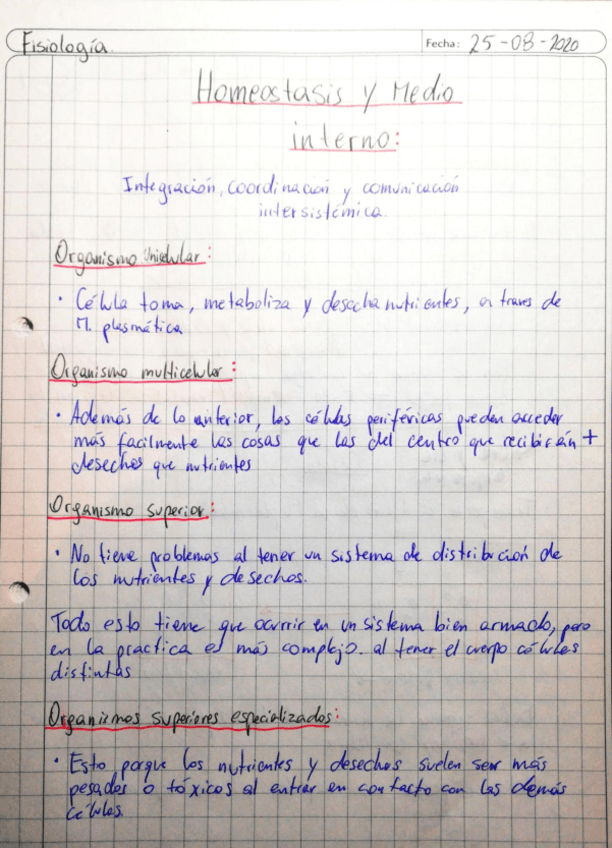 Fisiología.
Fecha: 25-08-2020
Homeostasis y Medio
interno:
Integración, coordinación y comunicación
intersistémica.
Organismo Unicelular:
• Célula toma, metaboliza y desecha nutrientes, a traves de
M. plasmática
Organismo multicelular:
• Además de lo anterior, las células periféricas pueden acceder
más facilmente las cosas que las del centro que recibirán +
desechos que nutrientes
Organismo superior:
• No tiene problemas al tener un sistema de distribución de
los nutrientes y desechos.
Todo esto tiene que ocurrir en un sistema bien armado, pero
en la practica es más complejo. al tener el cuerpo células
distintas
Organismos superiores especializados:
• Esto porque los nutrientes y desechos suelen ser más
pesados o tóxicos al entrar en contacto con las demás
células.